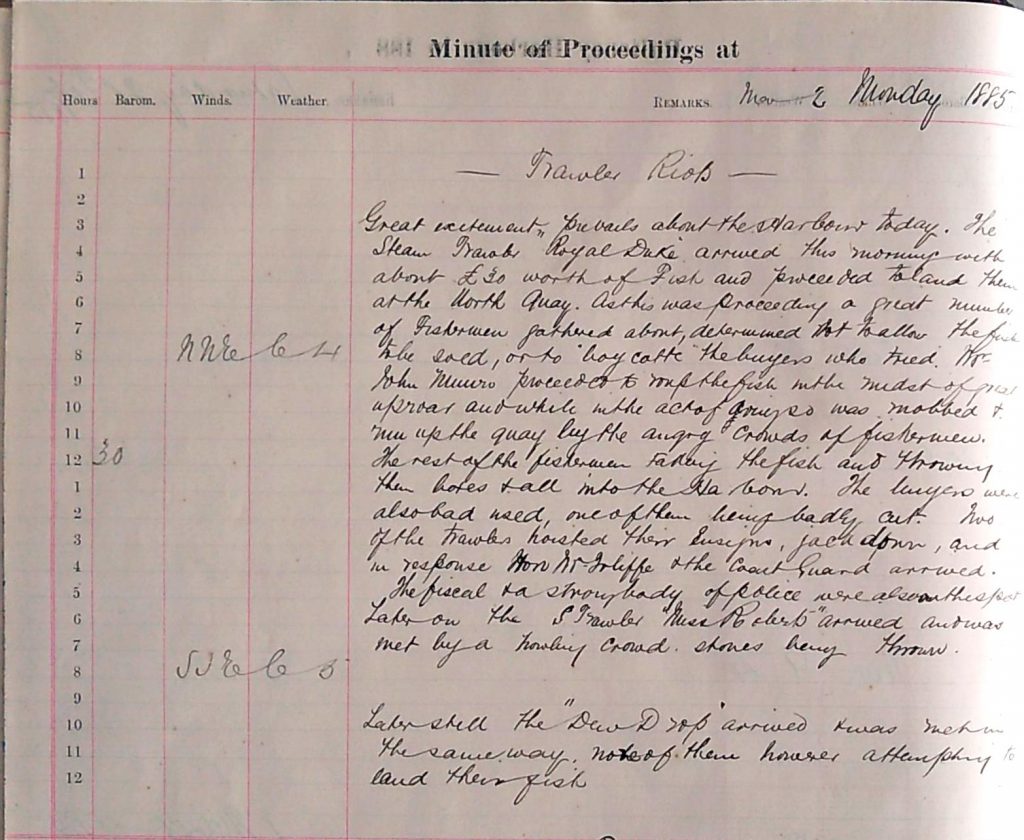 Minute of Proceedings at
Hours Barom. Winds. Weather. Remarks. Nov 2 Monday 1885
1 — Trawler Riots —
2
3 Great excitement prevails about the Harbour today. The
4 Steam Trawler "Royal Duke" arrived this morning with
5 about £30 worth of Fish and proceeded to land them
6 at the North Quay. As this was proceeding a great number
7 of Fishermen gathered about, determined not to allow the fish
8 NNE C 4 to be sold, or to "boycott" the buyers who tried. Mr
9 John Munro proceeded to roup the fish in the midst of great
10 uproar and while in the act of doing so was mobbed &
11 run up the quay by the angry crowds of fishermen.
12 30 The rest of the fishermen taking the fish and throwing
1 them boxes & all into the Harbour. The buyers were
2 also bad used, one of them being badly cut. Two
3 of the trawlers hoisted their Ensigns, jack down, and
4 in response Hon Mr the Coast Guard arrived.
5 The fiscal & a strong body of police were also on the spot
6 Later on the S Trawler "Miss Roberts" arrived and was
7 met by a howling crowd. stones being thrown.
8 SSE C 5
9
10 Later still the "Dew Drop" arrived & was met in
11 the same way, none of them however attempting to
12 land their fish